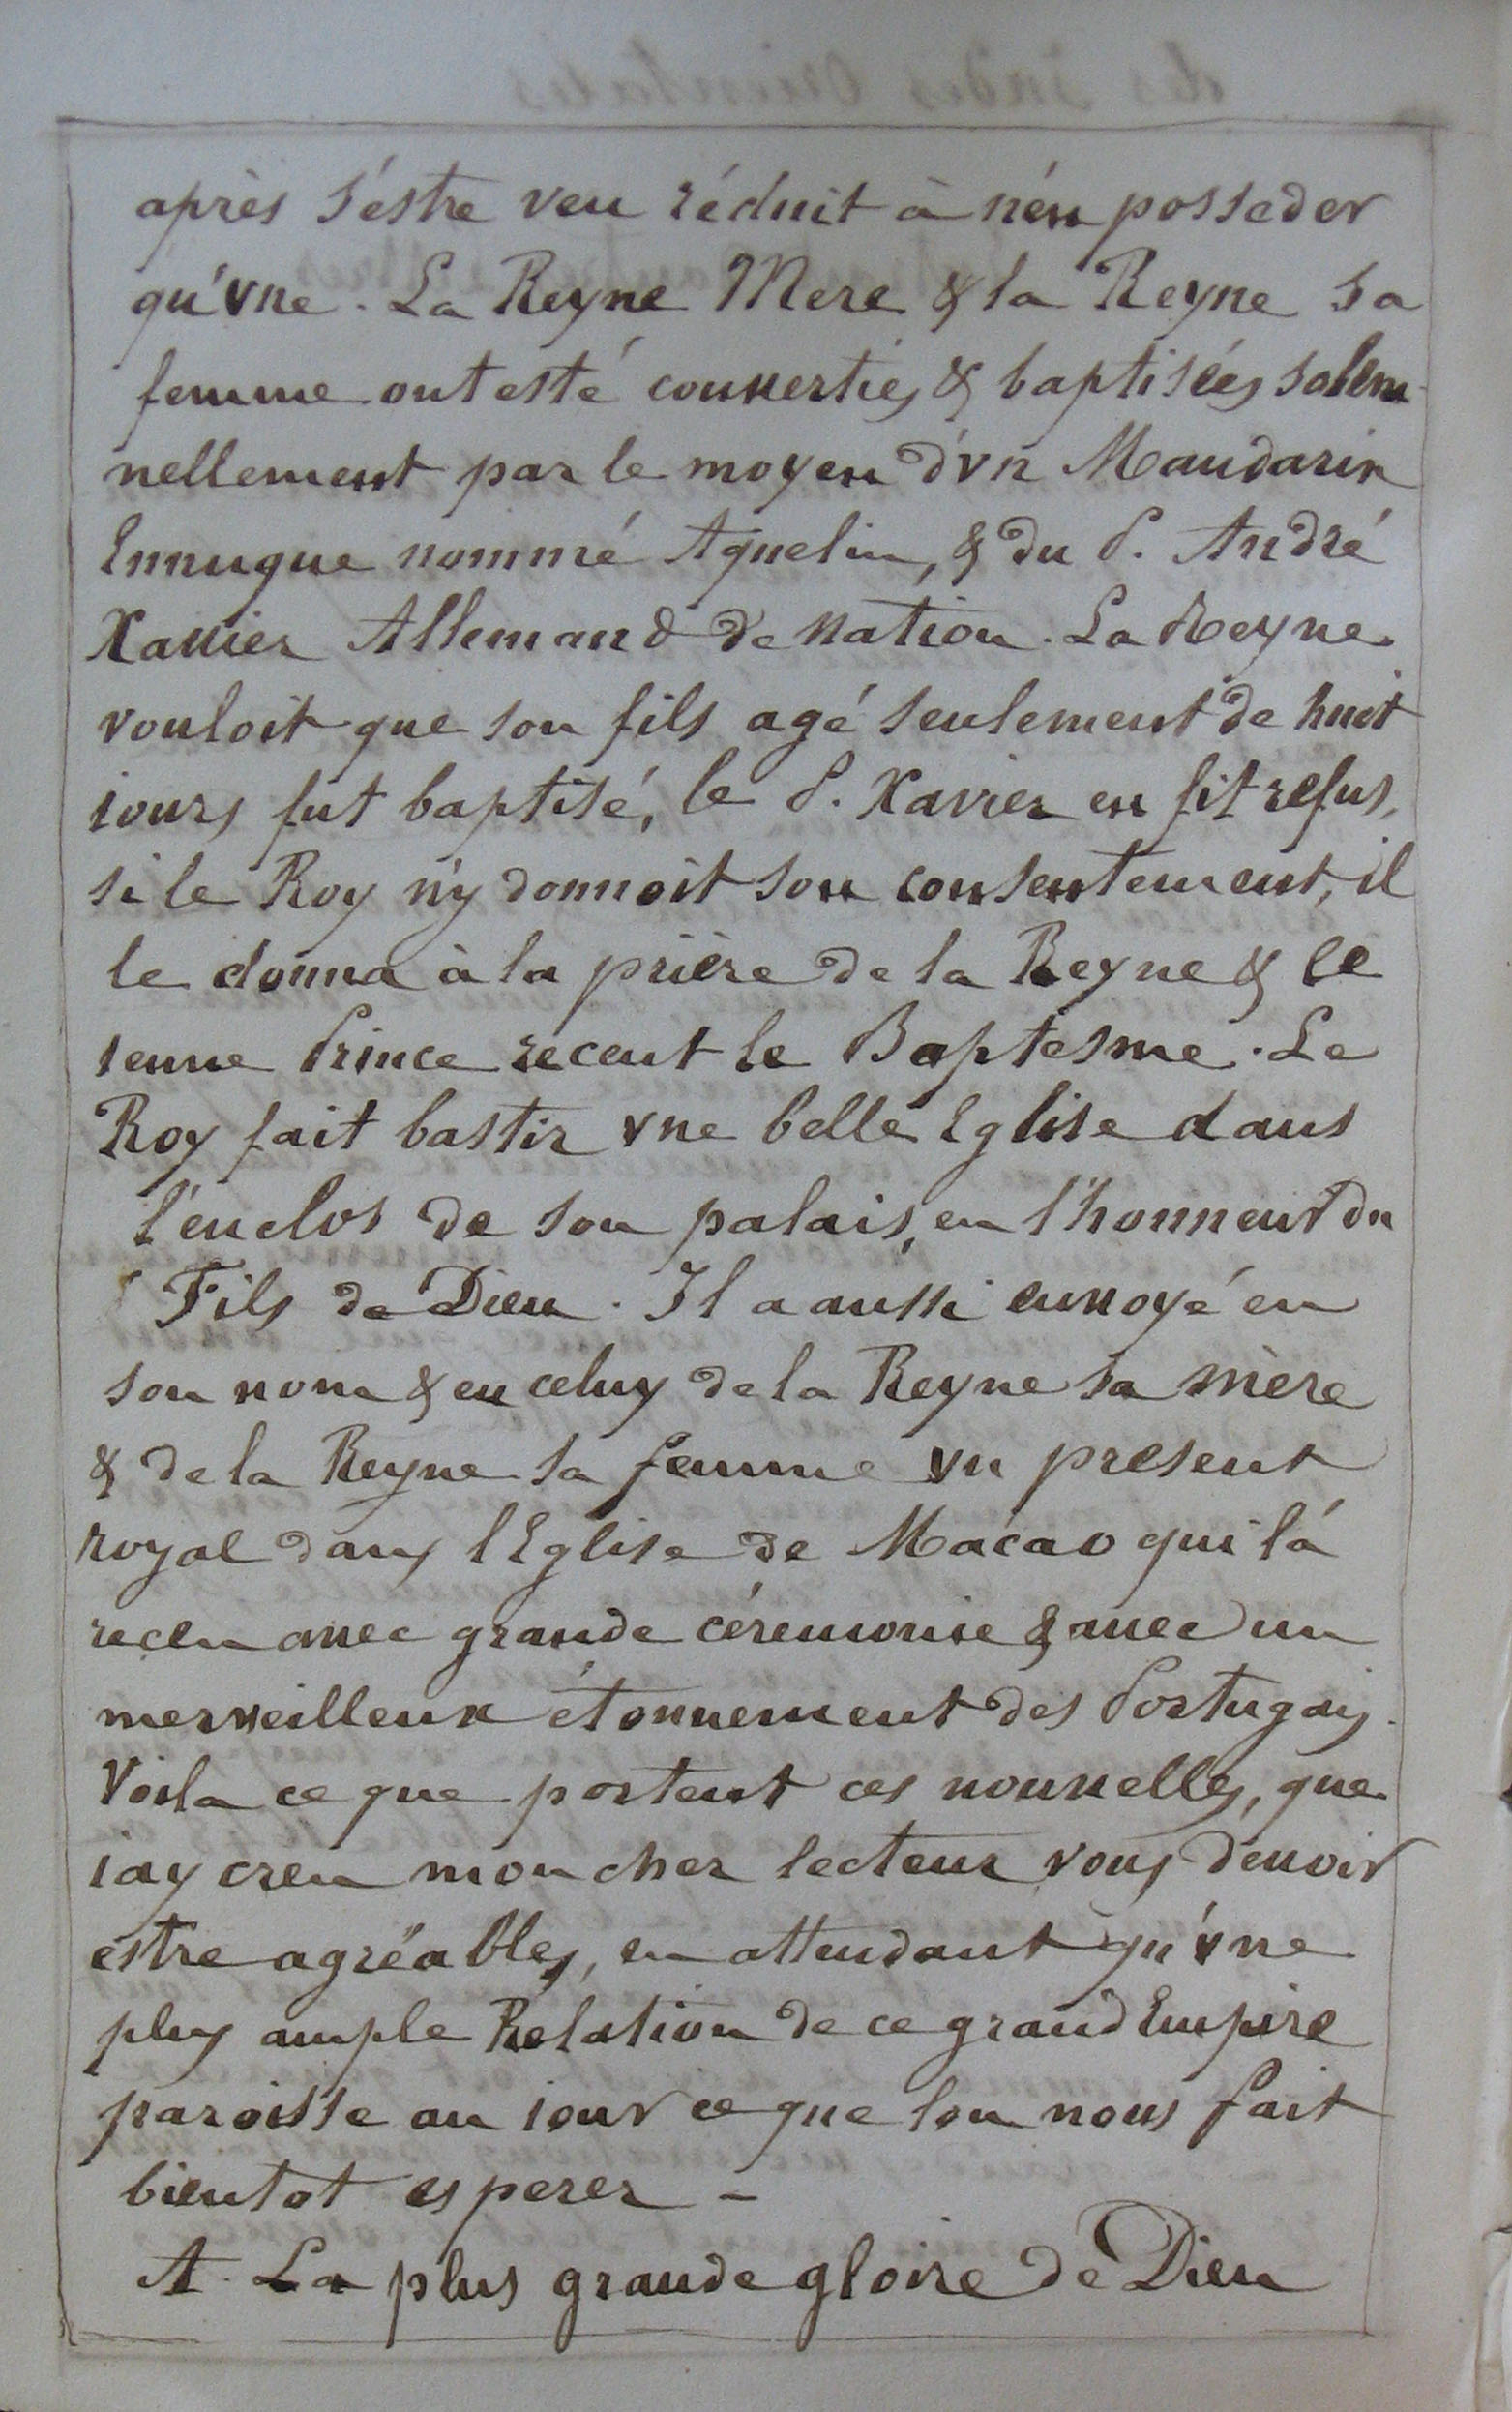 après s'éstre veu réduit à n'én posseder
qu'vne. La Reyne Mere & la Reyne sa
femme ont esté conuerties & baptisées solem-
nellement par le moyen d'vn Mandarin
Ennuque nommé Aquelin, & du P. André
Xauier Allemand de nation. La Reyne
vouloit que son fils agé seulement de huit
iours fut baptisé, le P. Xavier en fit refus,
si le Roy n'y donnoit son consentement, il
le donna à la prière de la Reyne & le
ieune Prince receut le Baptesme. Le
Roy fait bastir vne belle Eglise dans
l'enclos de son palais, en l'honneur du
Fils de Dieu. Il a aussi enuoyé en
son nom & en celuy de la Reyne sa mère
& de la Reyne sa femme vn present
royal dans l'Eglise de Macao qui l'á
receu auec grande céremonie & auec un
merveilleux étonnement des Portugais.
Voila ce que portent ces nouuelles, que
i'ay creu mon cher lecteur vous deuoir
estre agréables, en attendant qu'vne
plus ample Relation de ce grand Empire
paroisse au iour ce que l'on nous fait
bientot esperer -
A La plus grande gloire de Dieu